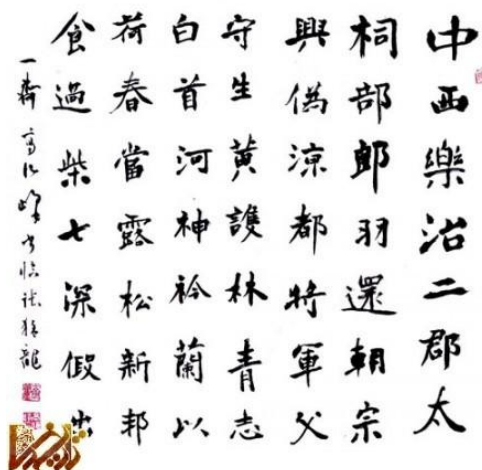 中西樂治二郡太
桐部郎羽還朝宗
興偽涼都將軍父
守生黃護林青志
白首河神衿蘭以
荷春當露松新邦
食過柴七深假出
一齋 臨張猛龍